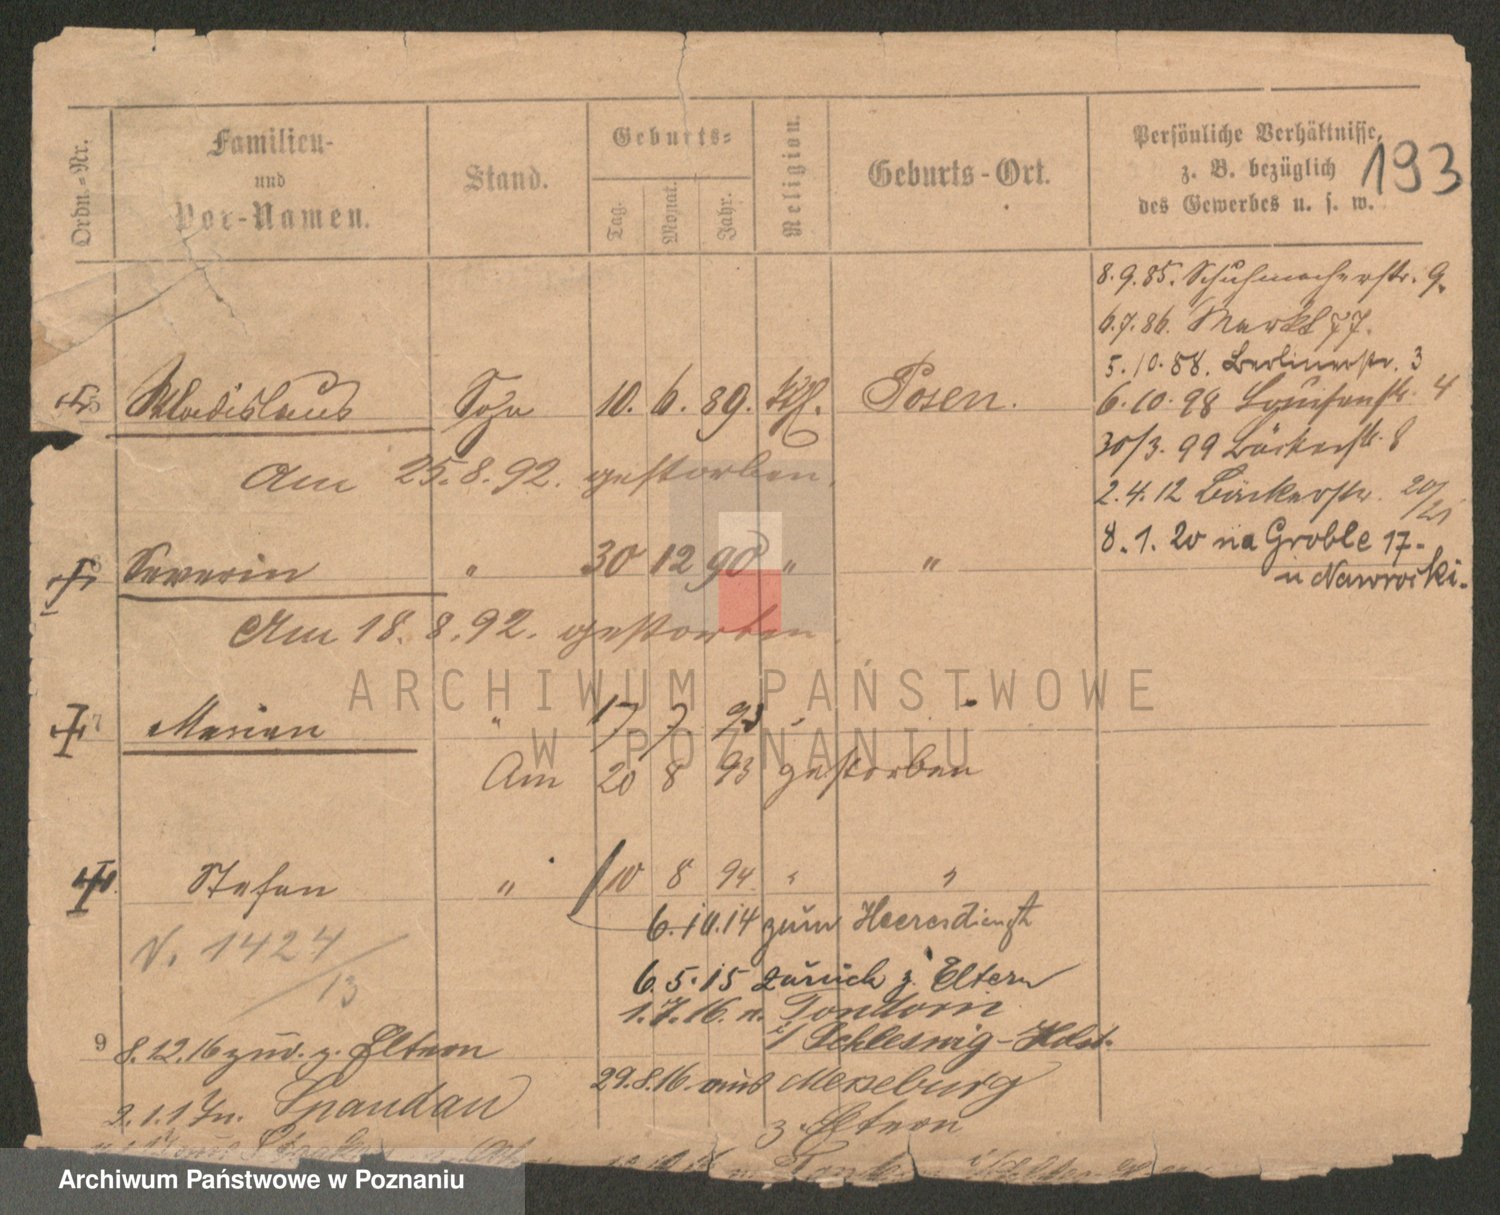 Ordn.-Nr.
Familien-
und
Vor-Namen.
Stand.
Geburts-
Tag.
Monat.
Jahr.
Religion.
Geburts-Ort.
Persönliche Verhältnisse,
z. B. bezüglich
des Gewerbes u. s. w.
193
8.9.85. Schuhmacherstr. 9.
6.7.86. Markt 77.
5.10.88. Berlinerstr. 3
6.10.98 Louisenstr. 4
30/3. 99 Bäckerstr. 8
2.4.12 Bäckerstr. 20/21
8.1.20 na Groble 17-
u Nawrocki.
5 Wladislaus Sohn 10. 6. 89. kth. Posen.
Am 25.8.92. gestorben.
6 Severin " 30 12 90 " "
Am 18.8.92. gestorben.
7 Marian " 17 7 93 " "
Am 20 8 93 gestorben
Stefan " 10 8 94 " "
N. 1424/13
6.10.14 zum Heeresdienst
6.5.15 zurück z. Eltern
1.7.16. n. Tondern
i/ Schleswig-Holst.
9 8.12.16 zur. z. Eltern
29.8.16. aus Merseburg
z. Eltern
2.1.17 n. Spandau
ARCHIWUM PAŃSTWOWE
W POZNANIU
Archiwum Państwowe w Poznaniu